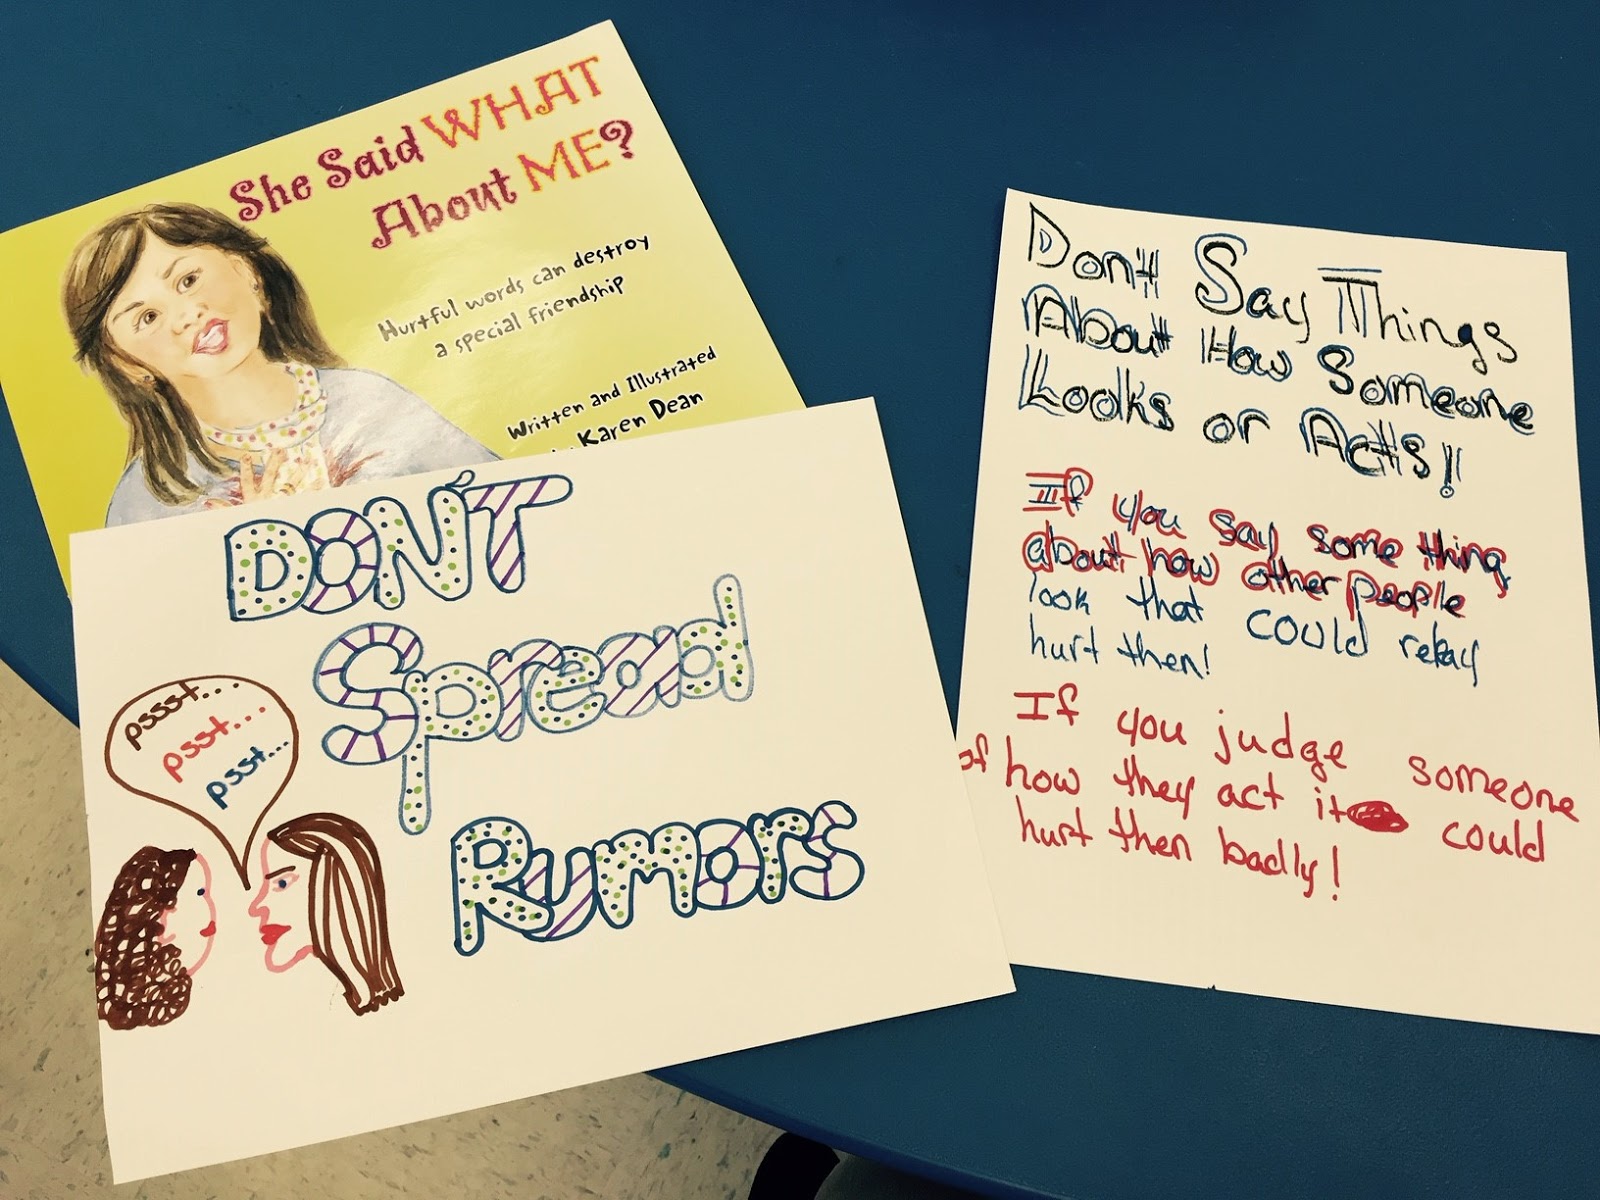 She Said WHAT
About ME?
Hurtful words can destroy
a special friendship
Written and Illustrated
Karen Dean
DON'T
Spread
Rumors
pssst...
psst...
psst...
Don't Say Things
About How Someone
Looks or Acts!
If you say some thing
about how other people
look that could relay
hurt then!
If you judge someone
of how they act it could
hurt then badly!